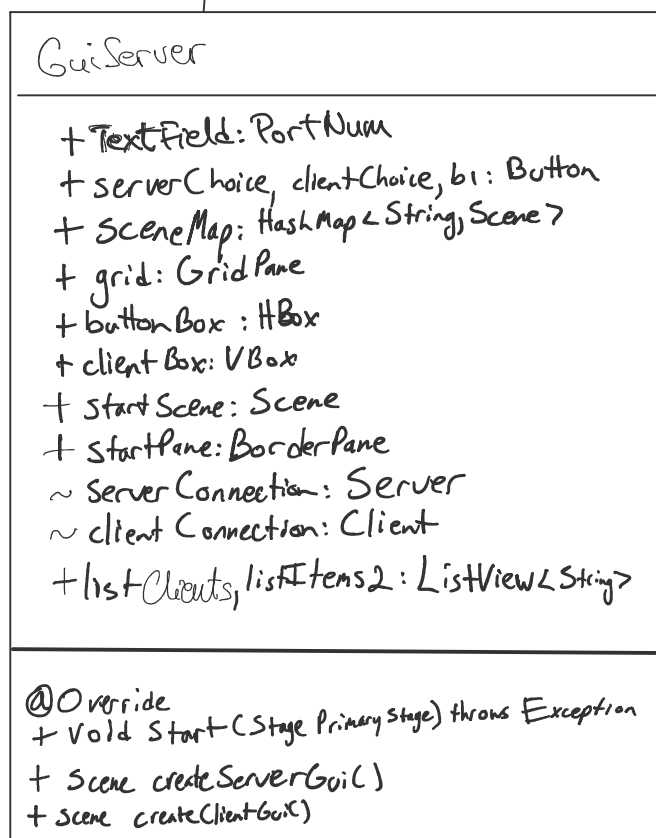 GuiServer
+ TextField: PortNum
+ serverChoice, clientChoice, b1: Button
+ sceneMap: HashMap<String, Scene>
+ grid: GridPane
+ buttonBox: HBox
+ clientBox: VBox
+ startScene: Scene
+ startPane: BorderPane
~ serverConnection: Server
~ clientConnection: Client
+ listClients, listItems2: ListView<String>
@Override
+ void start(Stage PrimaryStage) throws Exception
+ scene createServerGui()
+ scene createClientGui()